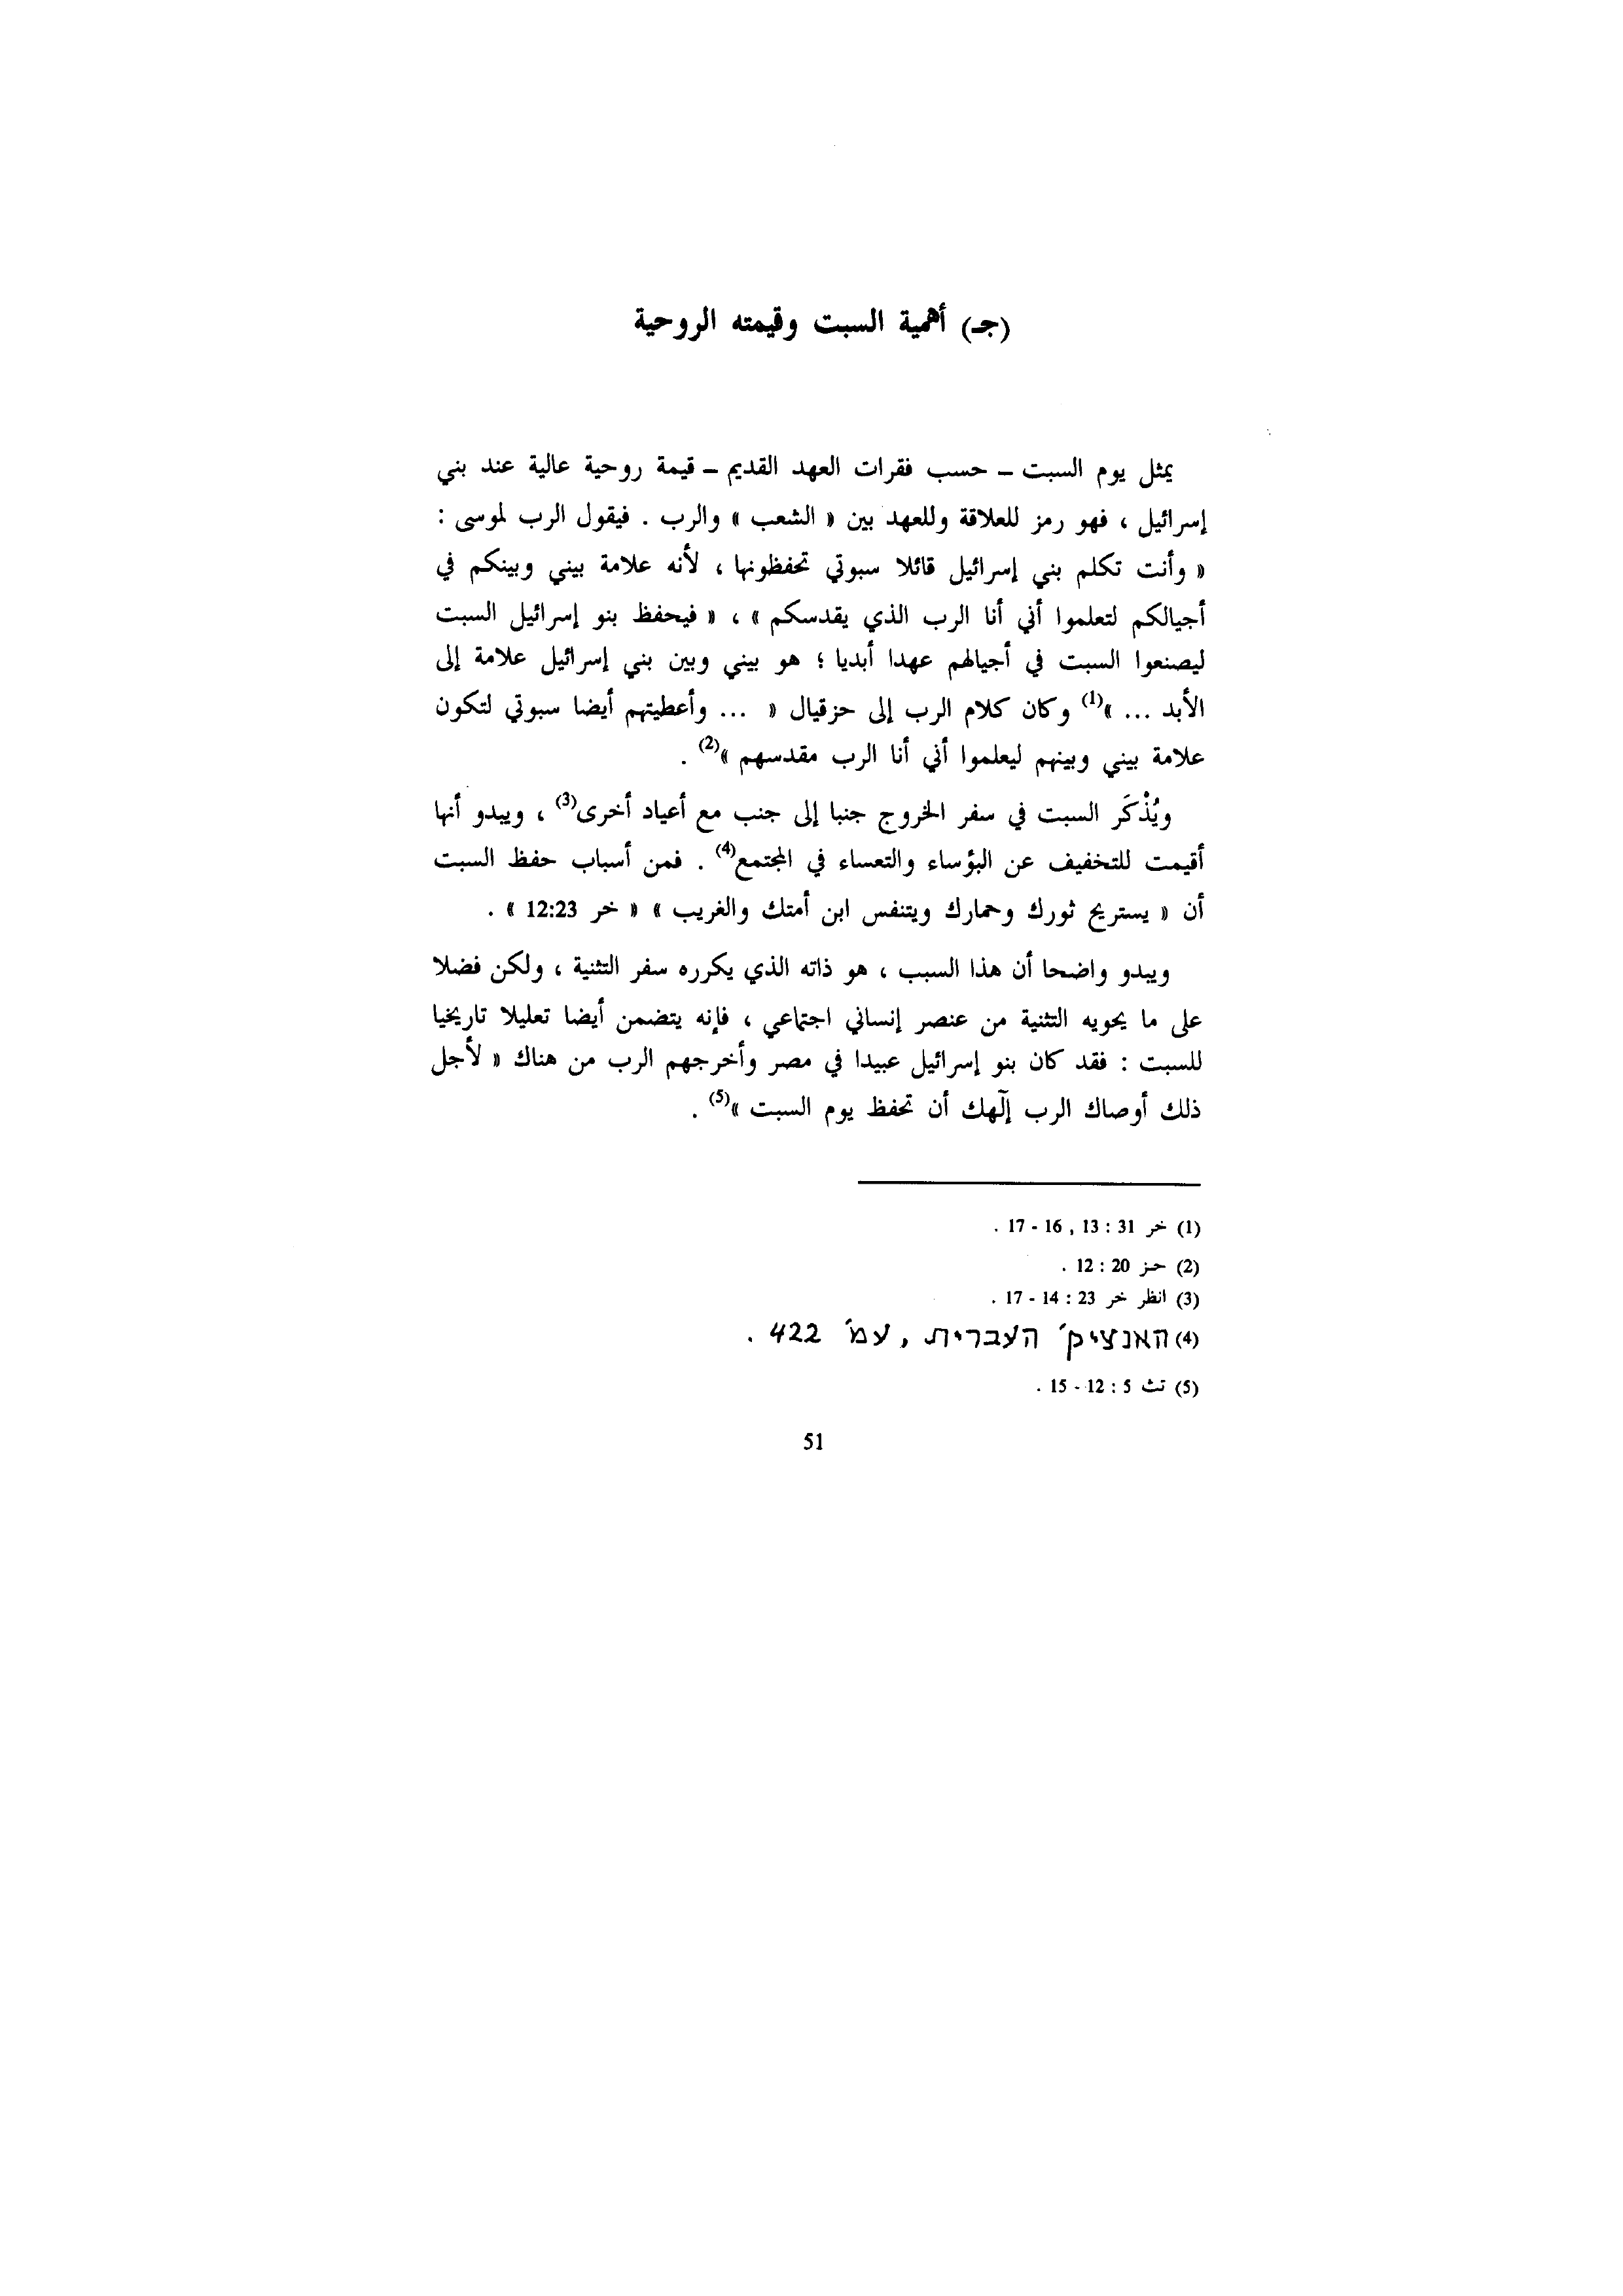 (جـ) أهمية السبت وقيمته الروحية
يمثل يوم السبت – حسب فقرات العهد القديم – قيمة روحية عالية عند بني
إسرائيل ، فهو رمز للعلاقة وللعهد بين « الشعب » والرب . فيقول الرب لموسى :
« وأنت تكلم بني إسرائيل قائلا سبوتي تحفظونها ، لأنه علامة بيني وبينكم في
أجيالكم لتعلموا أني أنا الرب الذي يقدسكم » ، « فيحفظ بنو إسرائيل السبت
ليصنعوا السبت في أجيالهم عهدا أبديا ؛ هو بيني وبين بني إسرائيل علامة إلى
الأبد ... »(1) وكان كلام الرب إلى حزقيال « ... وأعطيتهم أيضا سبوتي لتكون
علامة بيني وبينهم ليعلموا أني أنا الرب مقدسهم »(2) .
ويُذْكَر السبت في سفر الخروج جنبا إلى جنب مع أعياد أخرى(3) ، ويبدو أنها
أقيمت للتخفيف عن البؤساء والتعساء في المجتمع(4) . فمن أسباب حفظ السبت
أن « يستريح ثورك وحمارك ويتنفس ابن أمتك والغريب » « خر 12:23 » .
ويبدو واضحا أن هذا السبب ، هو ذاته الذي يكرره سفر التثنية ، ولكن فضلا
على ما يحويه التثنية من عنصر إنساني اجتماعي ، فإنه يتضمن أيضا تعليلا تاريخيا
للسبت : فقد كان بنو إسرائيل عبيدا في مصر وأخرجهم الرب من هناك « لأجل
ذلك أوصاك الرب إلٓهك أن تحفظ يوم السبت »(5) .
(1) خر 31 : 13 , 16 - 17 .
(2) حز 20 : 12 .
(3) انظر خر 23 : 14 - 17 .
(4) האנציק׳ העברית , עמ׳ 422 .
(5) تث 5 : 12 - 15 .
51